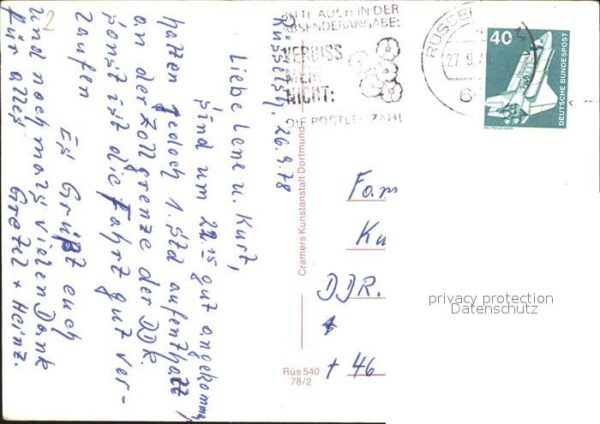 Rüsselsh, 26.9.78
Liebe Lene u. Kurt,
sind um 22.15 gut angekomm,
hatten jedoch 1. Std aufenthalt
an der Zollgrenze der DDR.
sonst ist die Fahrt gut ver-
laufen
Es Grüßt euch
und nochmals vielen Dank
für alles
Gretel + Heinz.
2
Cramers Kunstanstalt Dortmund
Rüs 540
78/2
BITTE AUCH IN DER
ABSENDERANGABE:
VERGISS
MEIN
NICHT:
DIE POSTLEITZAHL
RÜSSE
27.9.
6
40
DEUTSCHE BUNDESPOST
Fam
Ku
DDR.
+ 46
privacy protection
Datenschutz